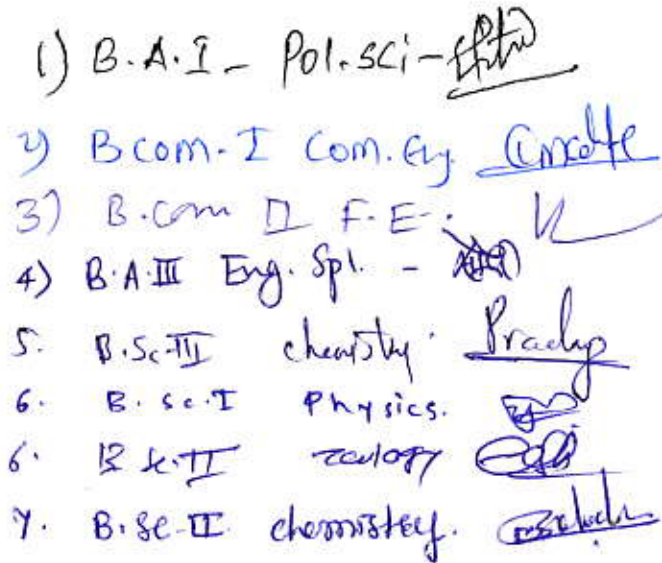 1) B.A.I - Pol.Sci -
2) B com. I Com. Eng.
3) B.com II F.E.
4) B.A.III Eng. Spl. -
5. B.Sc.III chemistry Pradup
6. B.Sc.I Physics.
6. B Sc.II zoology
7. B.Sc-II chemistey.